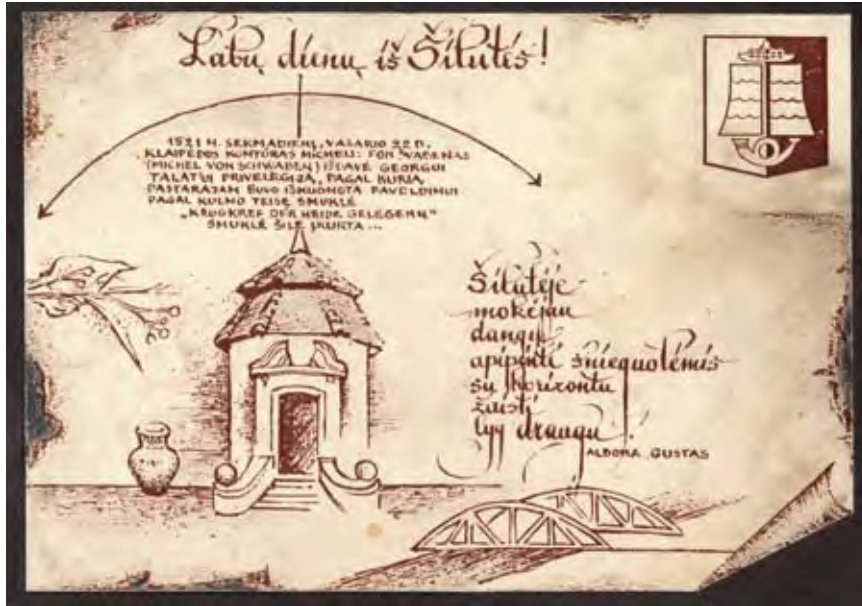 Labų dienų iš Šilutės!
1521 M. SEKMADIENĮ, VASARIO 22 D.
KLAIPĖDOS KOMTŪRAS MICHELIS FON ŠVADENAS
(MICHEL VON SCHWADEN) IŠDAVĖ GEORGUI
TALATUI PRIVELEGIJĄ, PAGAL KURIĄ
PASTARAJAM BUVO IŠNUOMOTA PAVELDIMUI
PAGAL KULMO TEISĘ SMUKLĖ
„KRUGKREF DER HEIDE GELEGENN“
SMUKLĖ ŠILE ĮKURTA...
Šilutėje
mokėjau
dangų
apipinti sniequolėmis
su horizontu
žaisti
lyg draugu!
ALDONA GUSTAS